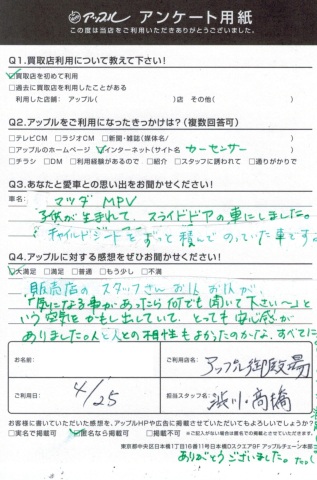 アップル アンケート用紙
この度は当店をご利用いただきありがとうございました。
Q1.買取店利用について教えて下さい!
☑買取店を初めて利用
□過去に買取店を利用したことがある
利用した店舗: アップル( )店 その他( )
Q2.アップルをご利用になったきっかけは?(複数回答可)
□テレビCM □ラジオCM □新聞・雑誌(媒体名/ )
□アップルのホームページ ☑インターネット(サイト名 カーセンサー )
□チラシ □DM □利用経験があるので □紹介 □スタッフに誘われて □通りがかりで
Q3.あなたと愛車との思い出をお聞かせください!
車名: マツダ MPV
子供が生まれて、スライドドアの車にしました。
チャイルドシートをずっと積んでのっていた車です
Q4.アップルに対する感想をぜひお聞かせください!
☑大満足 □満足 □普通 □もう少し □不満
販売店のスタッフさんお1人お1人が、
「気になる事があったら何でも聞いて下さい~」と
いう空気をかもし出していて、とっても安心感が
ありました。人と人との相性もよかったのかな、すべてに
お名前: ご利用店名: アップル御殿場
ご利用日: 4/25 担当スタッフ名: 渋川・高橋
お客様に書いていただいた感想を、アップルHPや広告に掲載させていただいてもよろしいでしょうか?
□実名で掲載可 ☑匿名なら掲載可 □掲載不可
東京都中央区日本橋1丁目16番11号日本橋Dスクエア9F アップルチェーン本部
ありがとうございました。